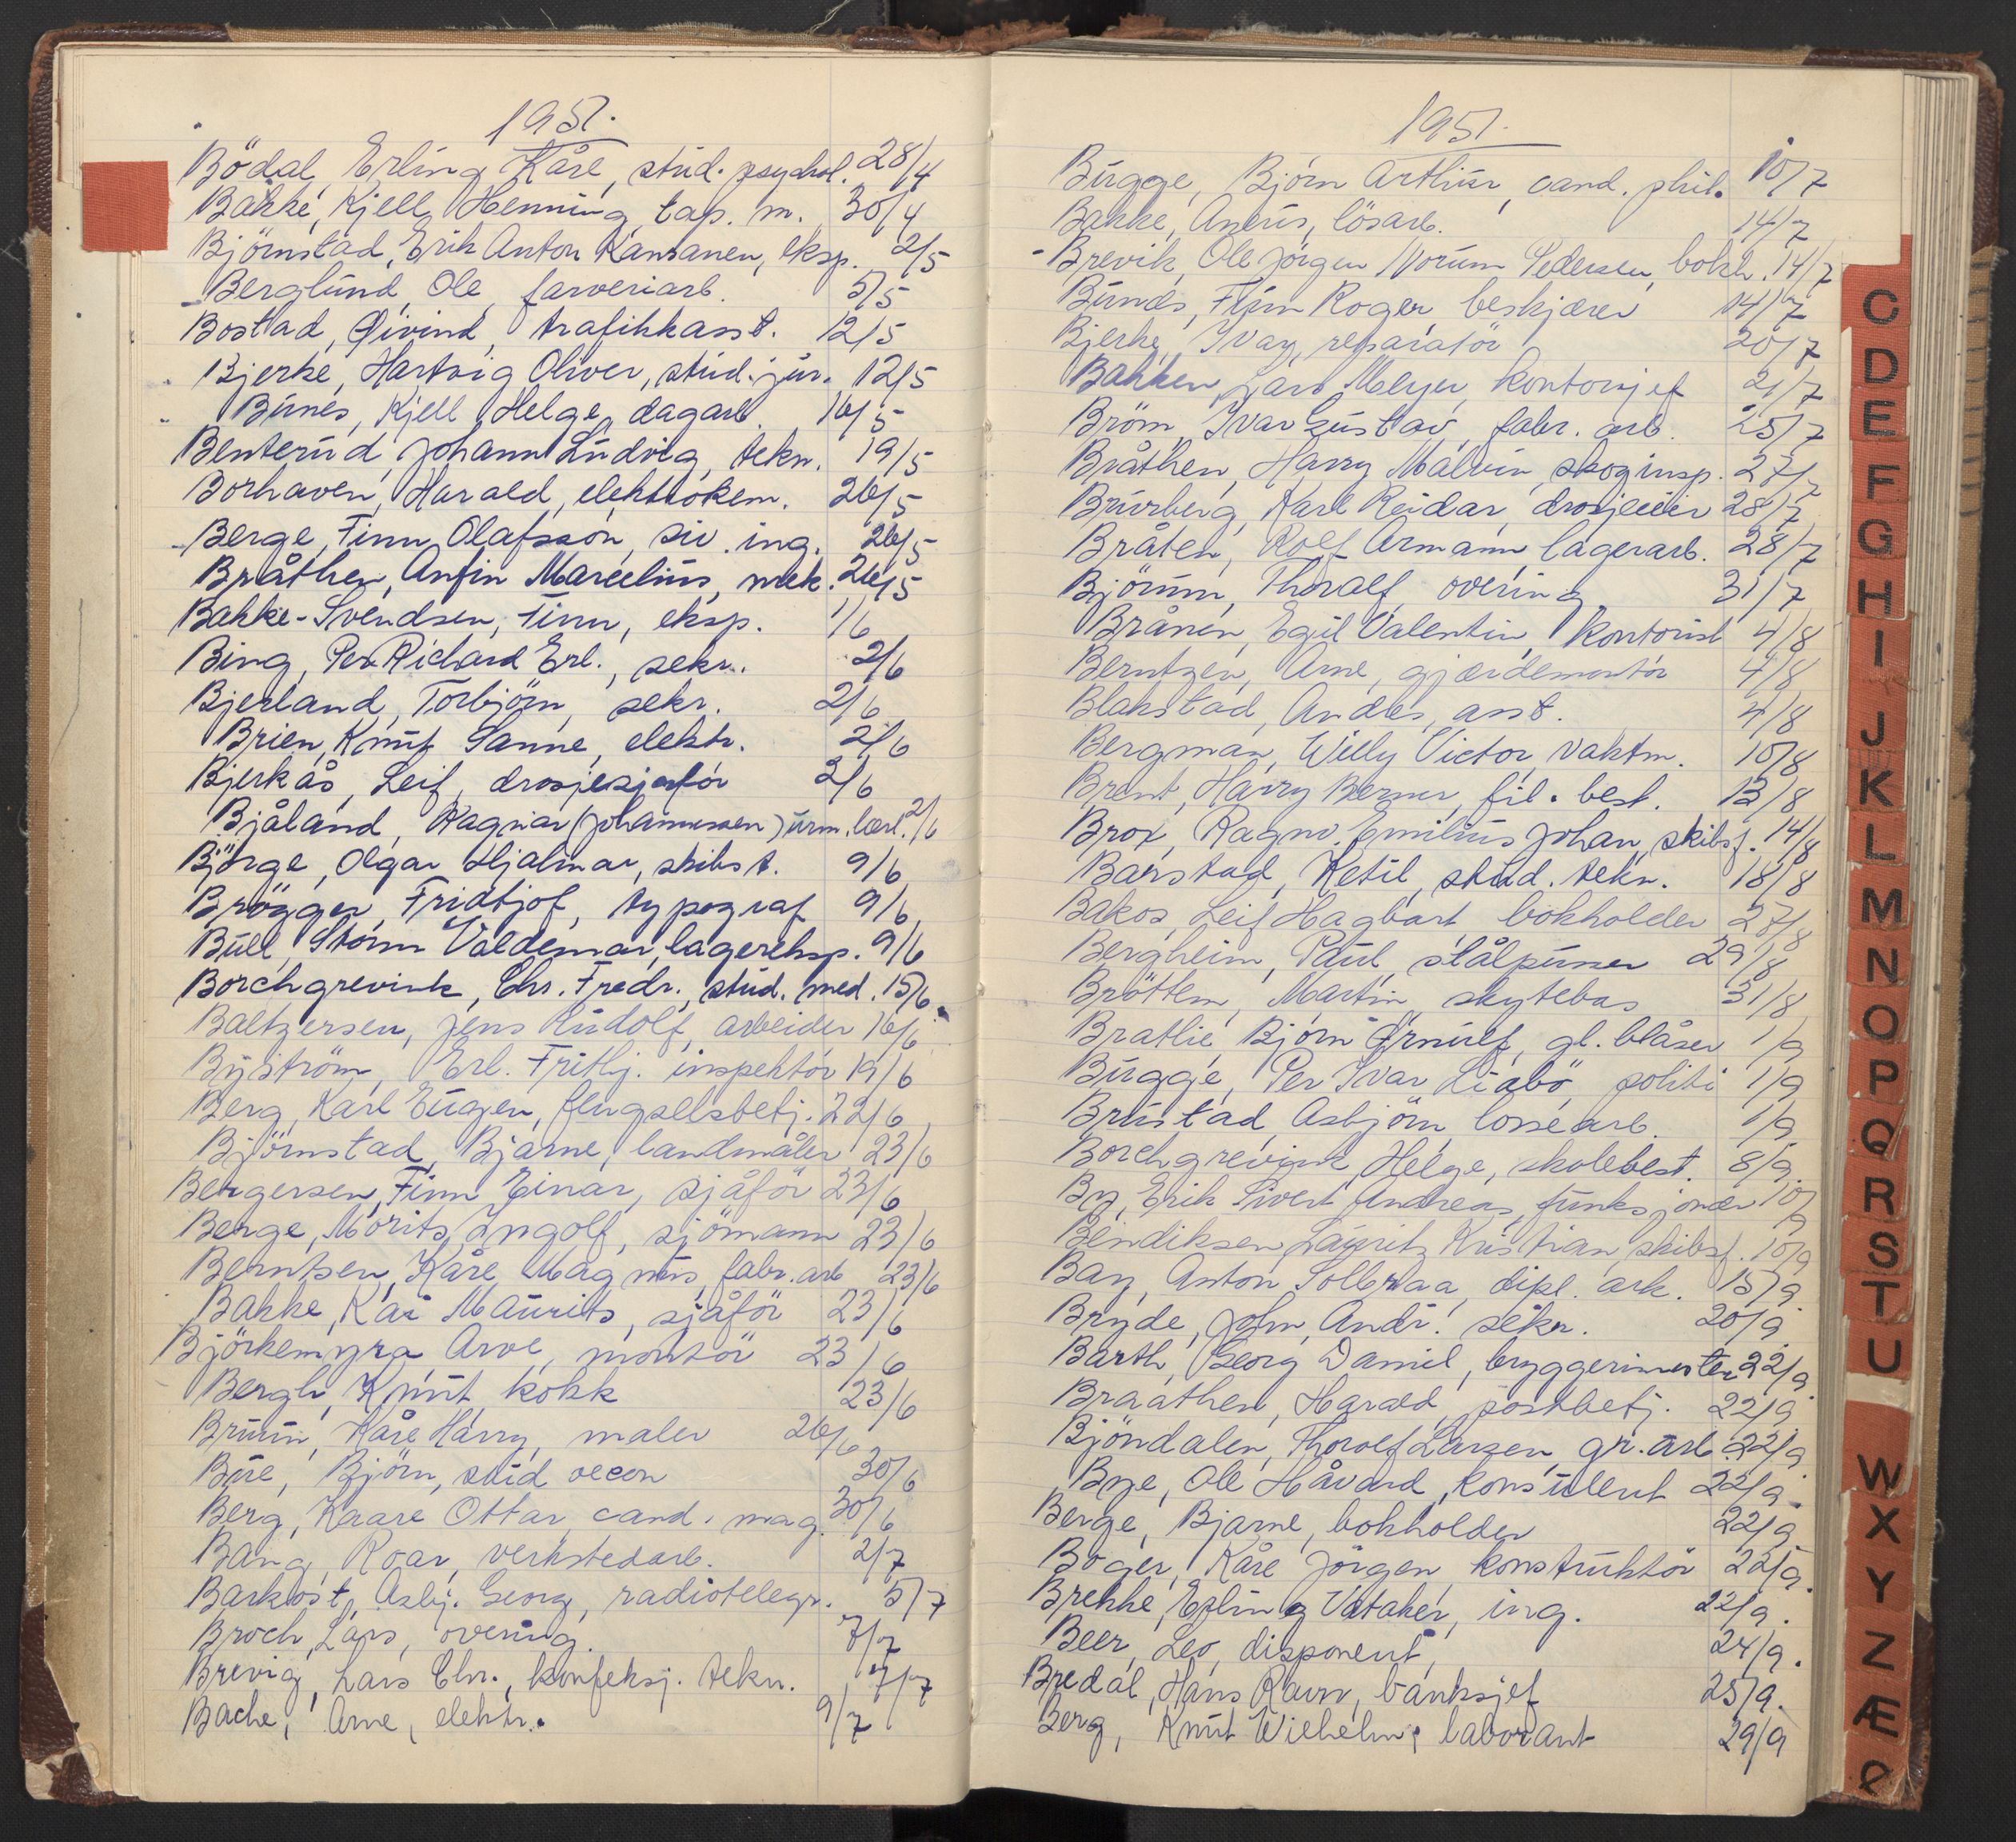 1951.
Bödal, Erling Kåre, stud. psychol. 28/4
Bakke, Kjell Henning, tap. m. 30/4
Björnstad, Erik Anton Kansanen, eksp. 2/5
Berglund, Ole, farveriarb. 5/5
Bostad, Øivind, trafikkasst. 12/5
Bjerke, Hartvig Oliver, stud. jur. 12/5
Bunes, Kjell Helge, dagarb. 16/5
Benterud, Johann Ludvig, tekn. 19/5
Borhaven, Harald, elektrokem. 26/5
Berge, Finn Olafsson, siv. ing. 26/5
Bråthen, Anfin Marcelius, mek. 26/5
Bakke-Svendsen, Finn, eksp. 1/6
Bing, Per Richard Erl., sekr. 2/6
Bjerland, Torbjörn, sekr. 2/6
Brien, Knut Sanne, elektr. 2/6
Bjerkås, Leif, drosjesjaför 2/6
Bjåland, Ragnar (Johannessen) urm. lærl. 2/6
Björge, Olgar Hjalmar, skibst. 9/6
Brögger, Fridtjof, typograf 9/6
Bull, Storm Valdemar, lagereksp. 9/6
Borchgrevink, Chr. Fredr., stud. med. 15/6
Baltzersen, Jens Rudolf, arbeider 16/6
Byström, Erl. Frithj. inspektör 19/6
Berg, Karl Eugen, fengselsbetj. 22/6
Björnstad, Bjarne, landmåler 23/6
Bergersen, Finn Einar, sjåför 23/6
Berge, Morits Ingolf, sjömann 23/6
Berntsen, Kåre Magnus, fabr. arb 23/6
Bakke, Kai Maurits, sjåför 23/6
Björkemyra Arve, montör 23/6
Bergh, Knut, kokk 23/6
Bruun, Kåre Harry, maler 26/6
Bue, Björn, stud oecon 30/6
Berg, Kaare Ottar, cand. mag. 30/6
Bang, Roar, verkstedarb. 2/7
Barkost, Asbj. Georg, radiotelegr. 5/7
Broch, Lars, overing. 7/7
Brevig, Lars Chr., konfeksj. tekn. 7/7
Bache, Arne, elektr. 9/7
1951.
Bugge, Björn Arthur, cand. phil. 10/7
Bakke, Anerus, lösarb. 14/7
Brevik, Ole Jörgen Norum Pedersen, bokh. 14/7
Bunds, Finn Roger, beskjærer 14/7
Bjerke, Ivar, reparatör 20/7
Bakken, Lars Meyer, kontorsjef 21/7
Bröm, Ivar Gustav, fabr. arb. 25/7
Bråthen, Harry Malvin, skoginsp. 27/7
Brurberg, Karl Reidar, drosjeeier 28/7
Bråten, Rolf Armann, lagerarb. 28/7
Björum, Thoralf, overing 31/7
Brånen, Egil Valentin, kontorist 4/8
Berntzen, Arne, gjærdemontör 4/8
Blakstad, Anders, asst. 4/8
Bergman, Willy Victor, vaktm. 10/8
Brent, Harry Berner, fil. best. 13/8
Brox, Ragnv. Emilius Johan, skibsf. 14/8
Barstad, Ketil, stud. tekn. 18/8
Bakos, Leif Hagbart, bokholder 27/8
Bergheim, Paul, stålpusser 29/8
Bröttem, Martin, skytebas 31/8
Bratlie, Björn Ørnulf, gl. blåser 1/9
Bugge, Per Ivar Liabö, politi 1/9
Brustad, Asbjörn, lossearb. 1/9
Borchgrevink, Helge, skolebest. 8/9
By, Erik Sivert Andreas, funksjonær 10/9
Bendiksen, Lauritz Kristian, skibsf. 10/9
Bay, Anton Solbraa, dipl. ark. 15/9
Bryde, John Andr. sekr. 20/9
Barth, Georg Daniel, bryggerimester 22/9
Braathen, Harald, postbetj. 22/9
Bjöndalen, Thorolf Larsen, gr. arb. 22/9
Bye, Ole Håvard, konsulent 22/9
Berge, Bjarne, bokholder 22/9
Böger, Kåre Jörgen, konstruktör 22/9
Brekke, Erling Vataker, ing. 22/9
Beer, Leo, disponent, 24/9
Bredal, Hans Ravn, banksjef 25/9
Berg, Knut Wilhelm, laborant 29/9
C
D
E
F
G
H
I
J
K
L
M
N
O
P
Q
R
S
T
U
W
X
Y
Z
Æ
Ø